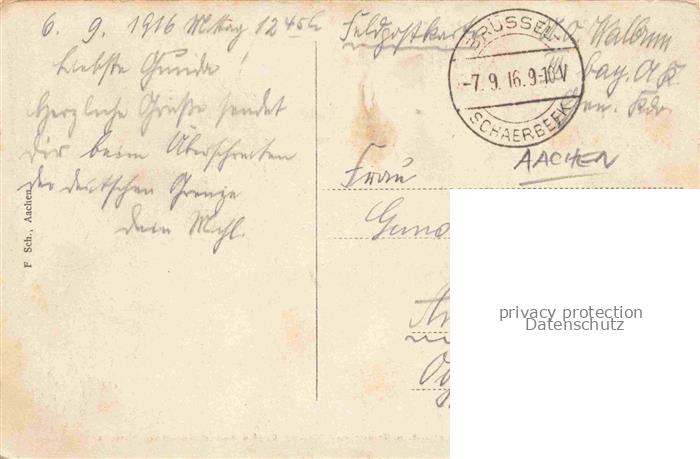 6. 9. 1916 Mittag 12 45h
Liebste Gunda!
Herzliche Grüße sendet
Dir beim Überschreiten
der deutschen Grenze
dein
F Sch., Aachen
Feldpostkarte
BRÜSSEL
-7. 9. 16. 9-10V
SCHAERBEEK
Walbrun
bay. A K
Gen. Kdo
AACHEN
Frau
privacy protection
Datenschutz